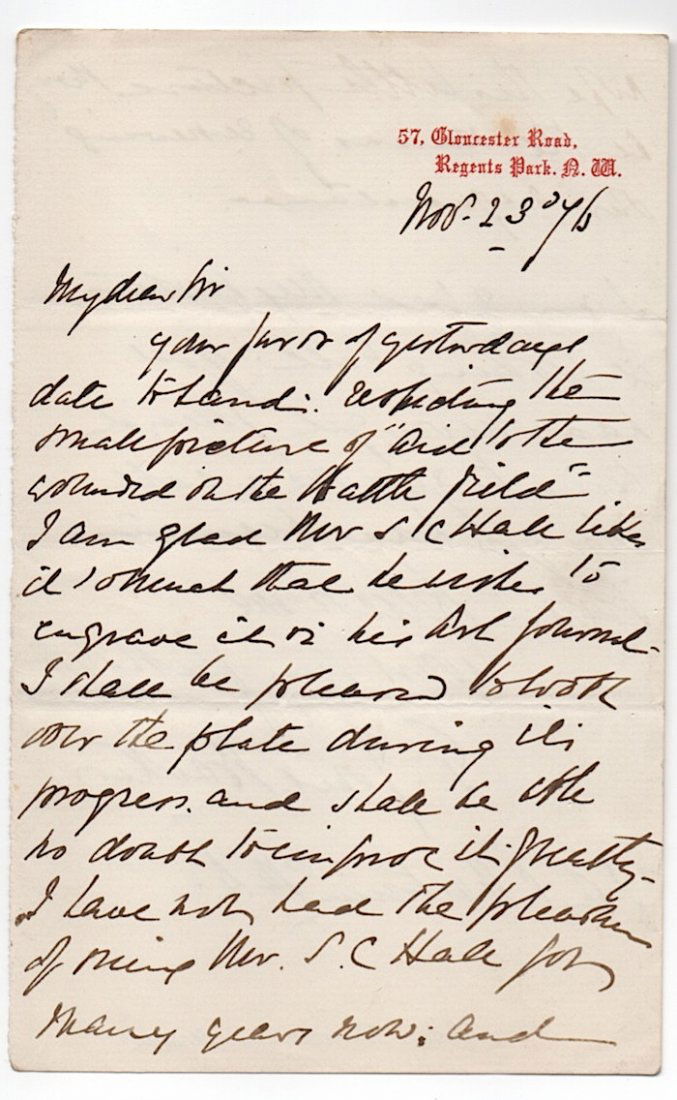 57, Gloucester Road,
Regents Park. N. W.
Nov. 23 / 76
My dear Sir
your favor of yesterdays
date to hand. respecting the
small picture of "Aid to the
wounded on the Battle Field"
I am glad Mr S C Hall likes
it so much that he wishes to
engrave it in his Art Journal.
I shall be pleased to look
over the plate during its
progress. and shall be able
no doubt to improve it greatly.
I have not had the pleasure
of seeing Mr. S. C Hall for
many years now: and